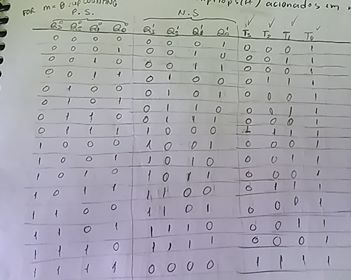 FOR m=0: up counting
P.S. N.S
Q3 Q2 Q1 Q0 Q3 Q2 Q1 Q0 T3 T2 T1 T0
0 0 0 0 0 0 0 1 0 0 0 1
0 0 0 1 0 0 1 0 0 0 1 1
0 0 1 0 0 0 1 1 0 0 0 1
0 0 1 1 0 1 0 0 0 1 1 1
0 1 0 0 0 1 0 1 0 0 0 1
0 1 0 1 0 1 1 0 0 0 1 1
0 1 1 0 0 1 1 1 0 0 0 1
0 1 1 1 1 0 0 0 1 1 1 1
1 0 0 0 1 0 0 1 0 0 0 1
1 0 0 1 1 0 1 0 0 0 1 1
1 0 1 0 1 0 1 1 0 0 0 1
1 0 1 1 1 1 0 0 0 1 1 1
1 1 0 0 1 1 0 1 0 0 0 1
1 1 0 1 1 1 1 0 0 0 1 1
1 1 1 0 1 1 1 1 0 0 0 1
1 1 1 1 0 0 0 0 1 1 1 1